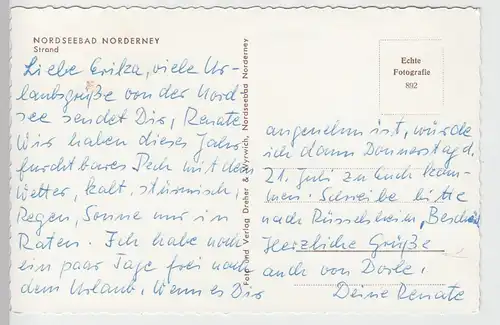 NORDSEEBAD NORDERNEY
Strand
Liebe Erika, viele Ur-
laubsgrüße von der Nord-
see sendet Dir, Renate
Wir haben dieses Jahr
furchtbares Pech mit dem
Wetter, kalt, stürmisch,
Regen, Sonne nur in
Raten. Ich habe noch
ein paar Tage frei nach
dem Urlaub, Wenn es Dir
Foto und Verlag Dreher & Wyrwich, Nordseebad Norderney
Echte
Fotografie
892
angenehm ist, würde
ich dann Donnerstag d.
21. Juli zu Euch kom-
men. Schreibe bitte
nach Rüsselsheim, Bescheid
Herzliche Grüße
auch von Dorle,
Deine Renate